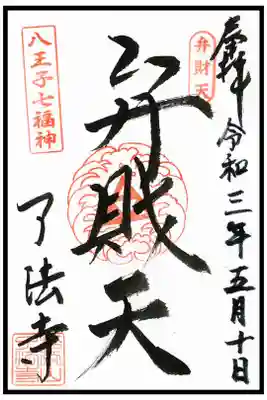 奉拝 令和三年五月十日
弁財天
弁財天
八王子七福神
了法寺